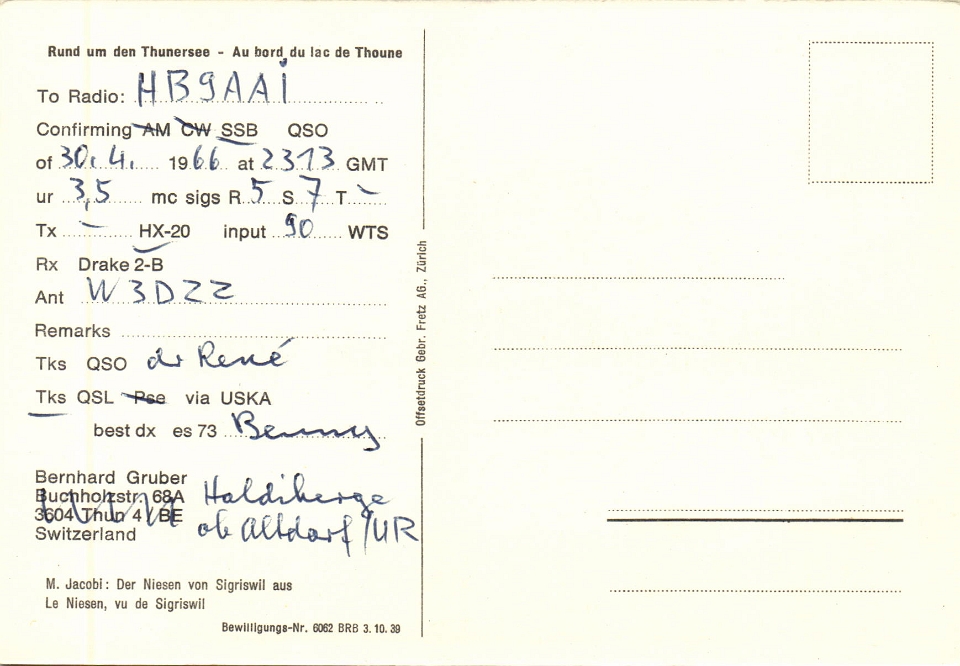 Rund um den Thunersee - Au bord du lac de Thoune
To Radio: HB9AAI
Confirming AM CW SSB QSO
of 30.4. 1966 at 2313 GMT
ur 3,5 mc sigs R 5 S 7 T -
Tx - HX-20 input 90 WTS
Rx Drake 2-B
Ant W3DZZ
Remarks
Tks QSO dr René
Tks QSL Pse via USKA
best dx es 73 Benny
Bernhard Gruber
Buchholzstr. 68A Haldiberge
3604 Thun 4 BE ob Altdorf/UR
Switzerland
M. Jacobi: Der Niesen von Sigriswil aus
Le Niesen, vu de Sigriswil
Bewilligungs-Nr. 6062 BRB 3.10.39
Offsetdruck Gebr. Fretz AG., Zürich